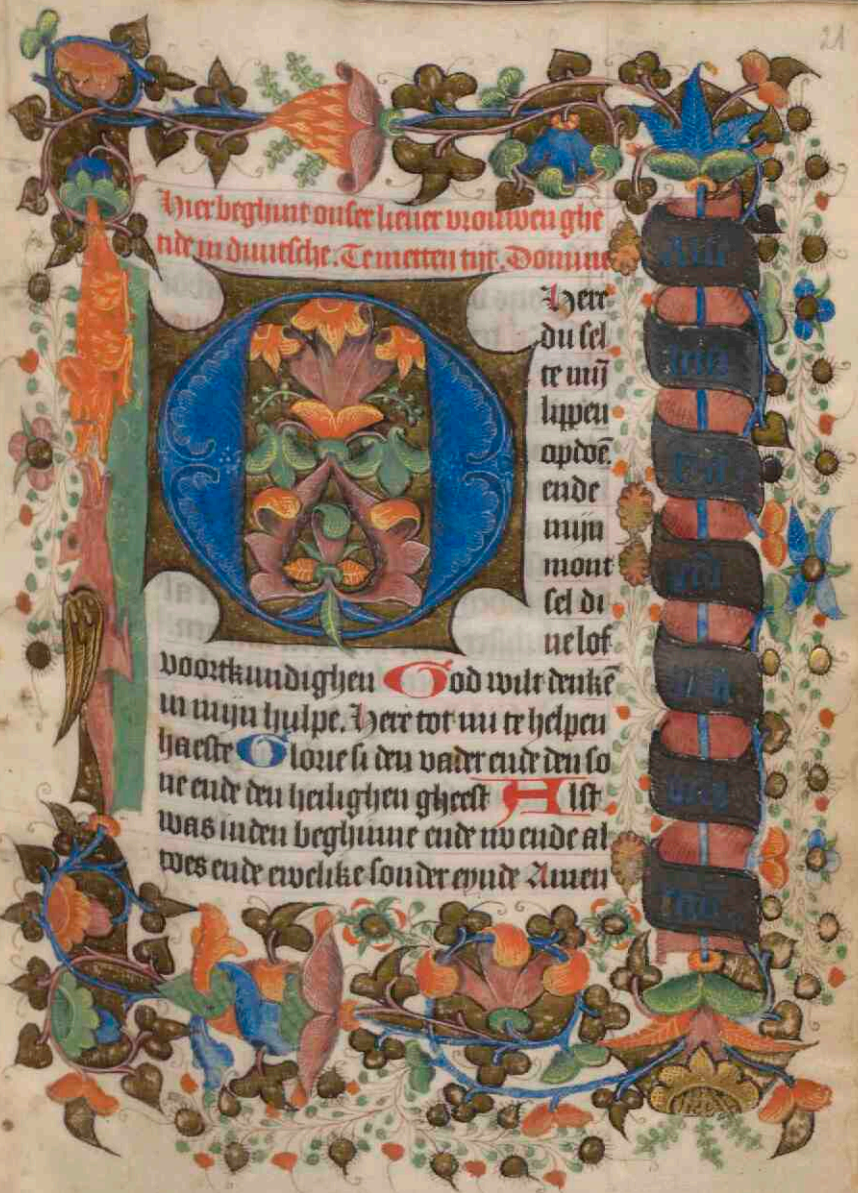 21
Hier beghint onser liever vrouwen ghe
tide in duutsche. Te metten tijt. Domine
Here
du sel
te mijn̄
lippen
opdoē.
ende
mijn
mont
sel di
ne lof
voortkundighen God wilt denkē
in mijn hulpe. Here tot mi te helpen
haeste Glorie si den vader ende den so
ne ende den heilighen gheest Alst
was inden beghinne ende nv ende al
toes ende ewelike sonder eynde Amen